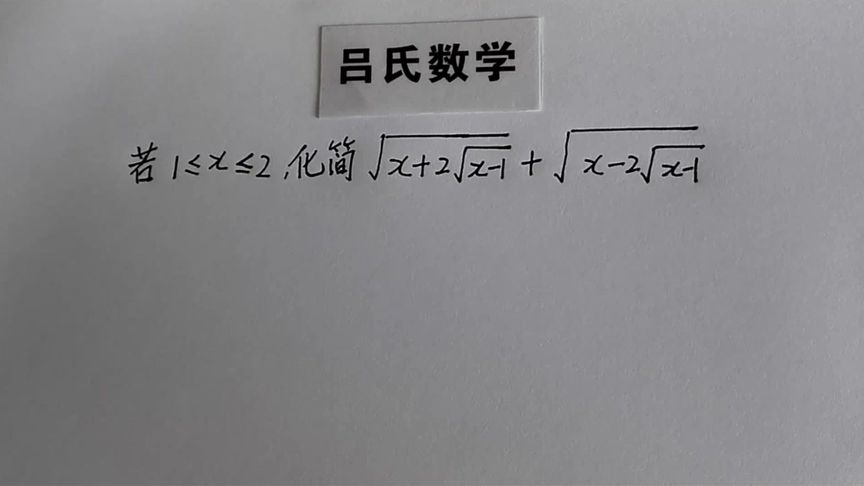 吕氏数学
若 1≤x≤2,化简 √(x+2√(x-1)) + √(x-2√(x-1))